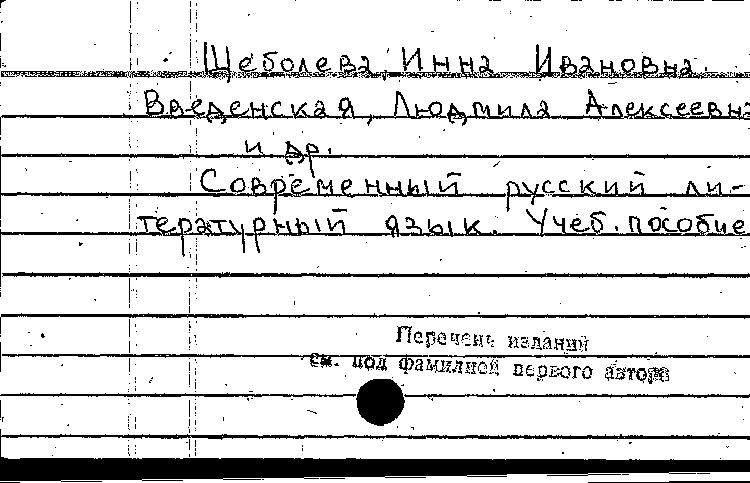 Щеболева, Инна Ивановна.
Введенская, Людмила Алексеевна
и др.
Современный русский ли-
тературный язык. Учеб. пособие
Перечень изданий
см. под фамилией первого автора